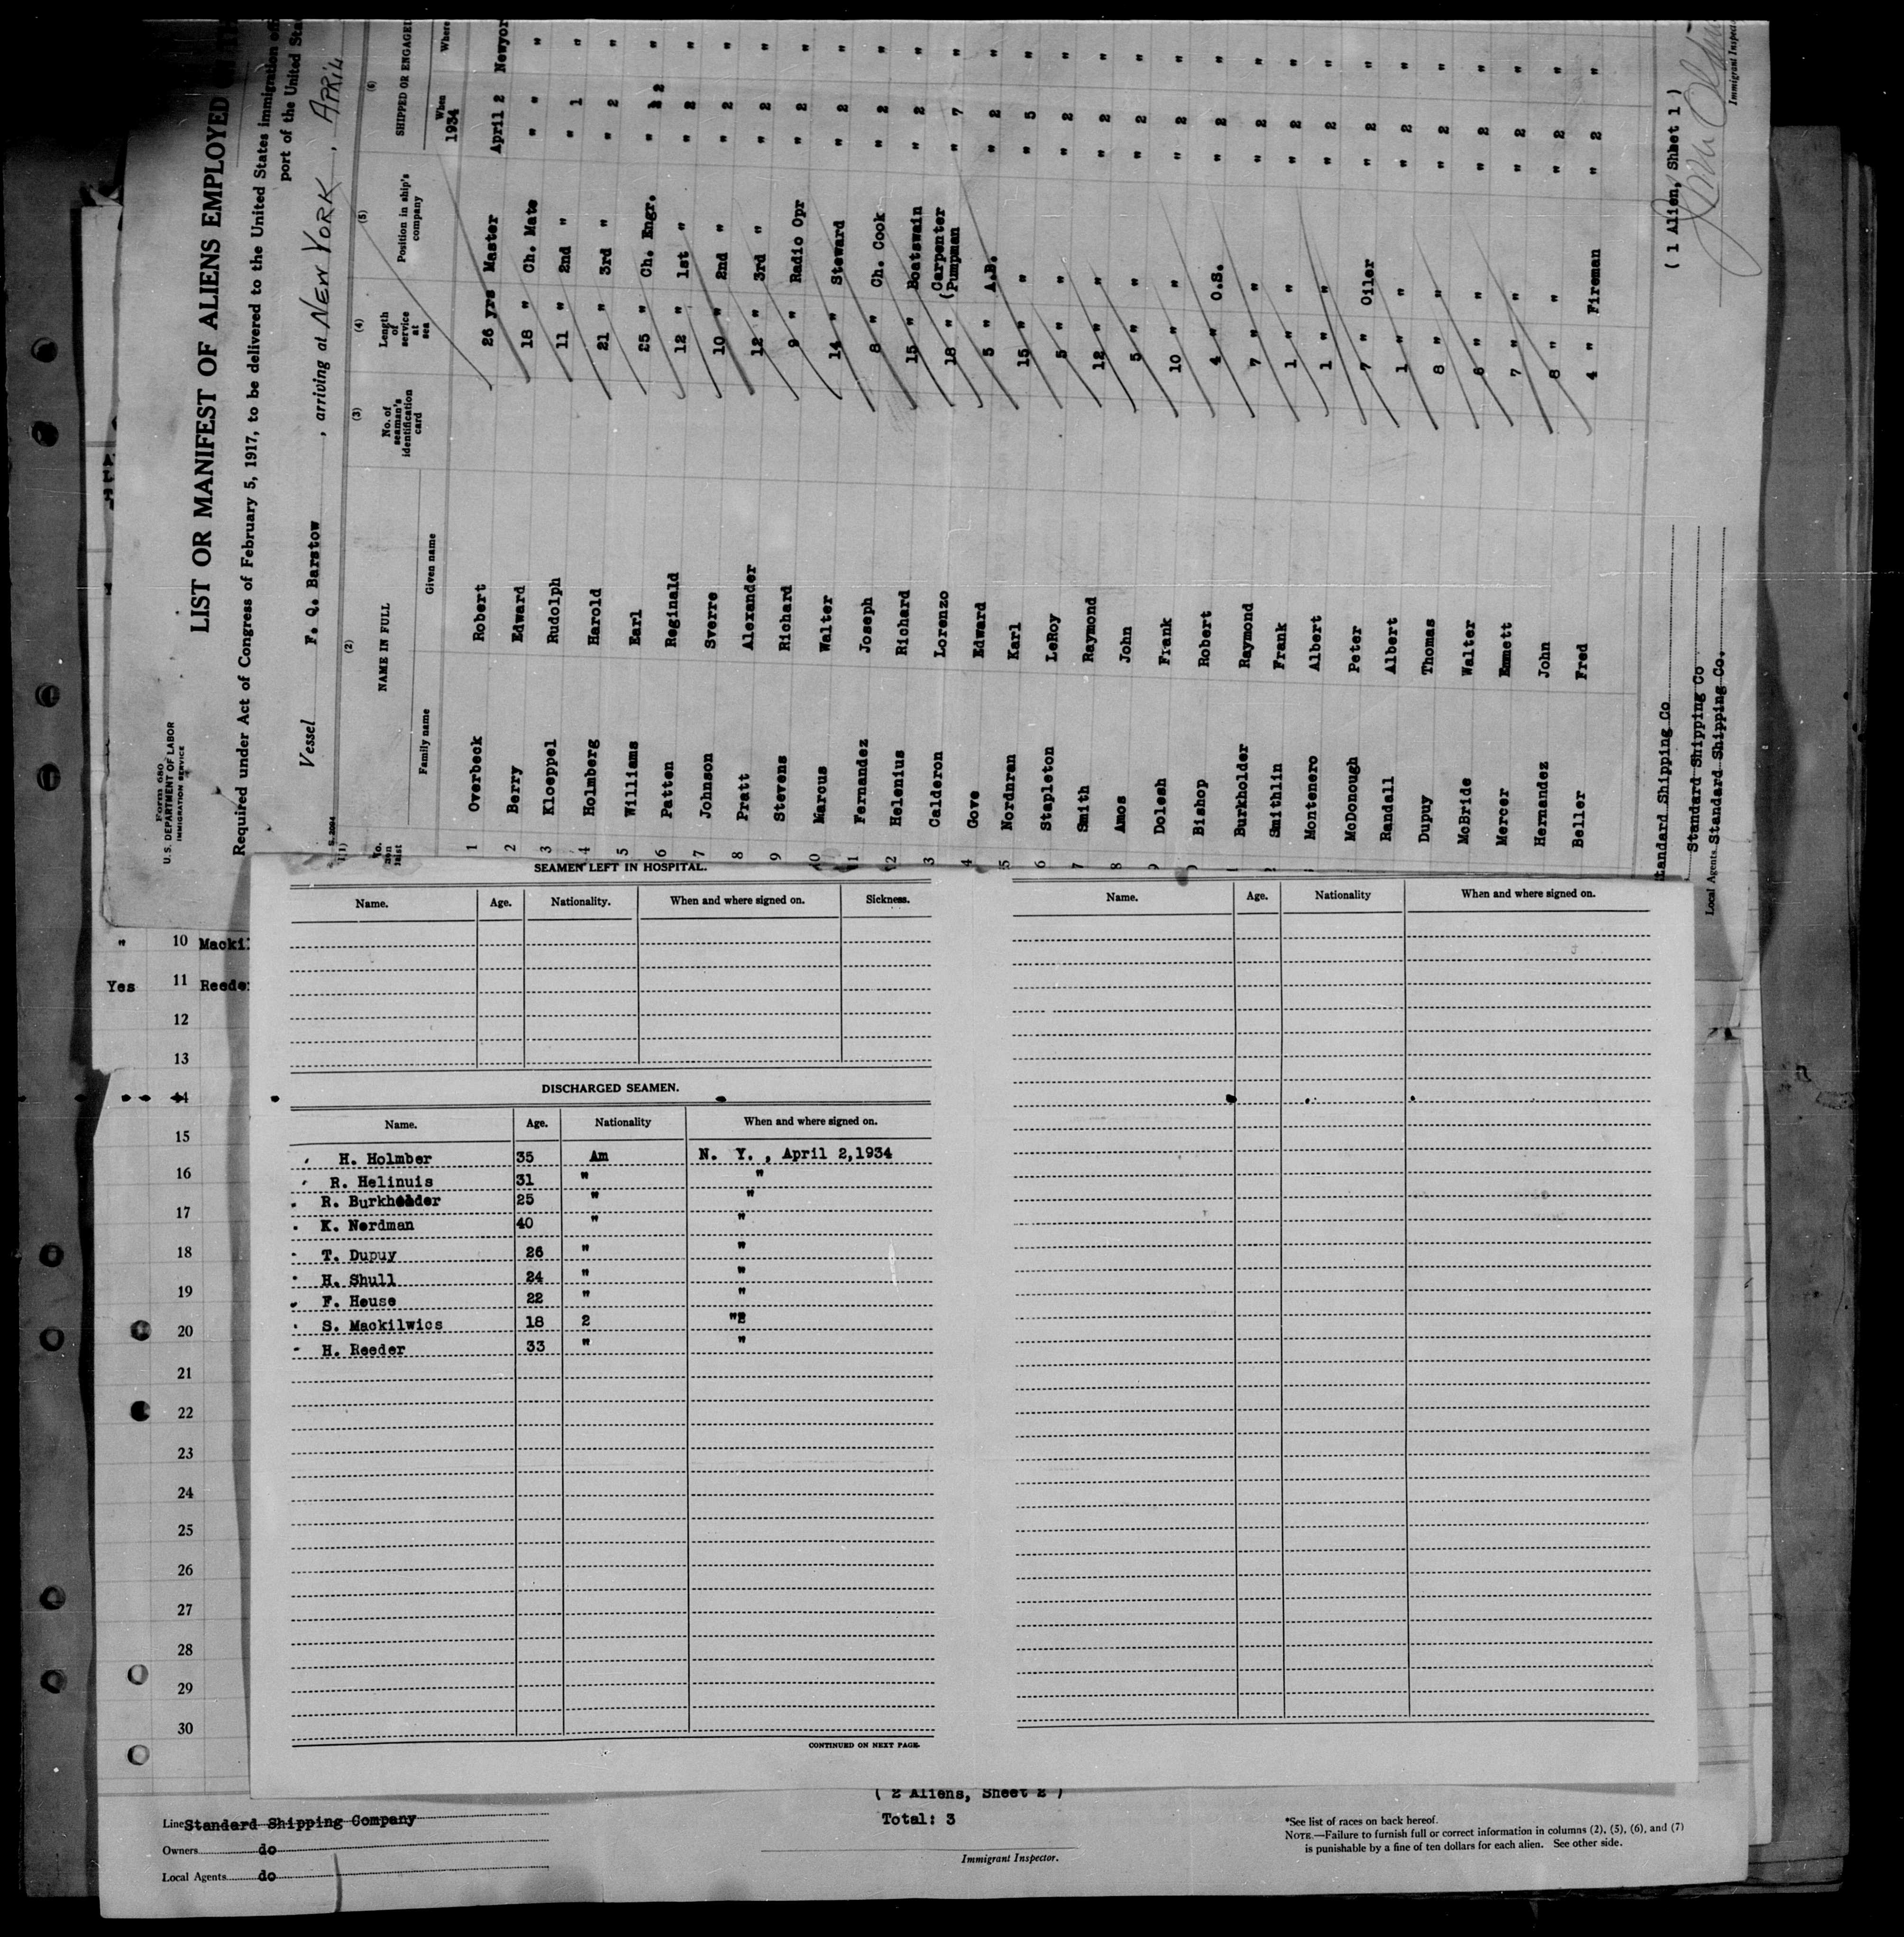 Form 680
U.S. DEPARTMENT OF LABOR
IMMIGRATION SERVICE
LIST OR MANIFEST OF ALIENS EMPLOYED
Required under Act of Congress of February 5, 1917, to be delivered to the United States immigration
port of the United
Vessel F. Q. Barstow, arriving at NEW YORK, APRIL
(2) (3) (4) (5) (6)
NAME IN FULL No. of seaman's identification card Length of service at sea Position in ship's company SHIPPED OR ENGAGED
Family name Given name When 1934 Where
1 Overbeck Robert 26 yrs Master April 2 Newyor
2 Berry Edward 18 " Ch. Mate " " "
3 Kloeppel Rudolph 11 " 2nd " " 1 "
4 Holmberg Harold 21 " 3rd " " 2 "
5 Williams Earl 25 " Ch. Engr. " 2 "
6 Patten Reginald 12 " 1st " " 2 "
7 Johnson Sverre 10 " 2nd " " 2 "
8 Pratt Alexander 12 " 3rd " " 2 "
9 Stevens Richard 9 " Radio Opr " 2 "
10 Marcus Walter 14 " Steward " 2 "
11 Fernandez Joseph 8 " Ch. Cook " 2 "
12 Helenius Richard 15 " Boatswain " 2 "
3 Calderon Lorenzo 18 " (Carpenter (Pumpman " 7 "
4 Gove Edward 5 " A.B. " 2 "
5 Nordnran Karl 15 " " " 5 "
6 Stapleton LeRoy 5 " " " 2 "
7 Smith Raymond 12 " " " 2 "
8 Amos John 5 " " " 2 "
9 Dolesh Frank 10 " " " 2 "
Bishop Robert 4 " O.S. " 2 "
Burkholder Raymond 7 " " " 2 "
Smithlin Frank 1 " " " 2 "
Montenero Albert 1 " " " 2 "
McDonough Peter 7 " Oiler " 2 "
Randall Albert 1 " " " 2 "
Dupuy Thomas 8 " " " 2 "
McBride Walter 6 " " " 2 "
Mercer Emmett 7 " " " 2 "
Hernandez John 8 " " " 2 "
Beller Fred 4 " Fireman " 2 "
( 1 Alien, Sheet 1 )
tandard Shipping Co
Standard Shipping Co
Local Agents Standard Shipping Co.
Immigrant Inspect
SEAMEN LEFT IN HOSPITAL.
Name. Age. Nationality. When and where signed on. Sickness.
DISCHARGED SEAMEN.
Name. Age. Nationality When and where signed on.
H. Holmber 35 Am N. Y., April 2,1934
R. Helinuis 31 " "
R. Burkholder 25 " "
K. Nordman 40 " "
T. Dupuy 26 " "
H. Shull 24 " "
F. House 22 " "
S. Mackilwics 18 2 "2
H. Reeder 33 " "
CONTINUED ON NEXT PAGE.
Name. Age. Nationality When and where signed on.
" 10 Mackil
Yes 11 Reede
12
13
14
15
16
17
18
19
20
21
22
23
24
25
26
27
28
29
30
( 2 Aliens, Sheet 2 )
Total: 3
Immigrant Inspector.
Line Standard Shipping Company
Owners do
Local Agents do
*See list of races on back hereof.
NOTE.—Failure to furnish full or correct information in columns (2), (5), (6), and (7)
is punishable by a fine of ten dollars for each alien. See other side.